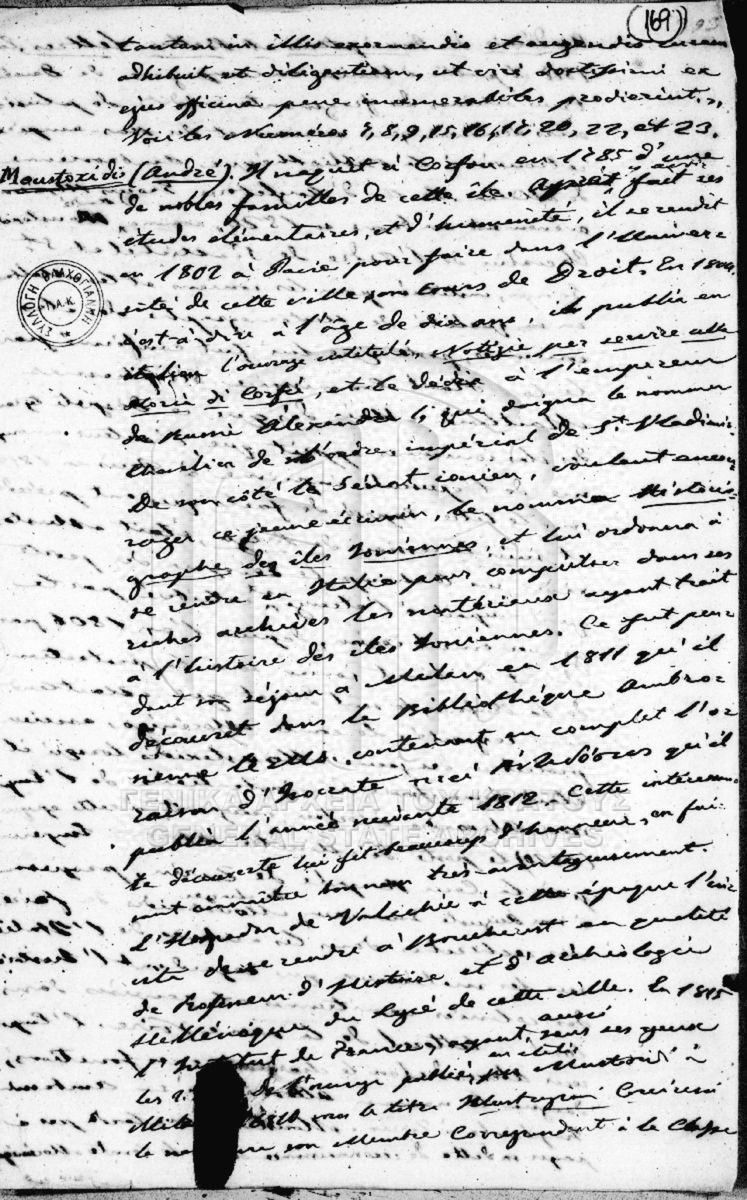 169
tantam in illis exornandis et augendis curam
adhibuit et diligentiam, ut viri doctissimi ex
ejus officina pene innumerabiles prodierint.
Voir les Numéros 7, 8, 9, 15, 16, 17, 20, 22, et 23.
Moustoxidis (André). Il naquit à Corfou en 1785 d'une
de nobles familles de cette île. Après y avoir fait ses
études élémentaires, et d'humanité, il se rendit
en 1802 à Pavie pour faire dans l'Univer=
sité de cette ville son cours de Droit. En 1804,
c'est à dire à l'âge de dix ans, il publia en
italien l'ouvrage intitulé, Notizie per servire alla
storia di Corfù, et le dédia à l'empereur
de Russie Alexandre I, qui daigna le nommer
chevalier de l'ordre impérial de St. Vladimir.
De son côté le Sénat ionien, voulant encou=
rager ce jeune écrivain, le nomma Historio=
graphe des îles Ioniennes, et lui ordonna à
se rendre en Italie pour compulser dans ses
riches archives les matériaux ayant trait
à l'histoire des îles Ioniennes. Ce fut pen=
dant son séjour à Milan en 1811 qu'il
découvrit dans la Bibliothèque Ambro=
sienne le Ms. contenant au complet l'o=
raison d'Isocrate περί Ἀντιδόσεως qu'il
publia l'année suivante 1812. Cette intéressan=
te découverte lui fit beaucoup d'honneur, en fai=
sant connaître son nom très avantageusement.
L'Hospodar de Valachie à cette époque l'in
vita de se rendre à Boucherest en qualité
de Professeur d'Histoire et d'archéologie
Hellénique du Lycée de cette ville. En 1815
aussi
l'Institut de France, ayant sous ses yeux
en italien
les de l'ouvrage publié par Mustoxidi à
sous le titre Illustrazioni Corciresi
le son Membre Correspondant à la Classe
ΣΥΛΛΟΓΗ ΒΛΑΧΟΓΙΑΝΝΗ
Γ.Α.Κ.
ΓΕΝΙΚΑ ΑΡΧΕΙΑ ΤΟΥ ΚΡΑΤΟΥΣ
GENERAL STATE ARCHIVES